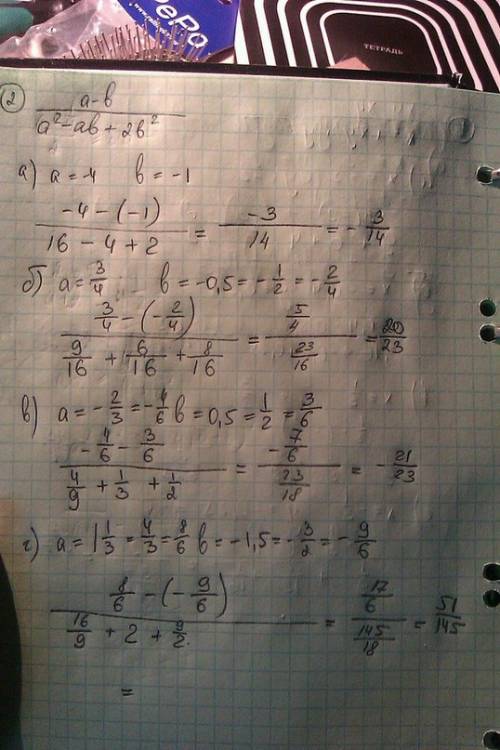 ePo
ТЕТРАДЬ
② (a-b)/(a²-ab+2b²)
а) a=-4 b=-1
(-4-(-1))/(16-4+2) = (-3)/14 = -3/14
б) a=3/4 b=-0,5=-1/2=-2/4
(3/4-(-2/4))/(9/16+6/16+8/16) = (5/4)/(23/16) = 20/23
в) a=-2/3=-4/6 b=0,5=1/2=3/6
(-4/6-3/6)/(4/9+1/3+1/2) = (-7/6)/(23/18) = -21/23
г) a=1 1/3=4/3=8/6 b=-1,5=-3/2=-9/6
(8/6-(-9/6))/(16/9+2+9/2) = (17/6)/(145/18) = 51/145
=